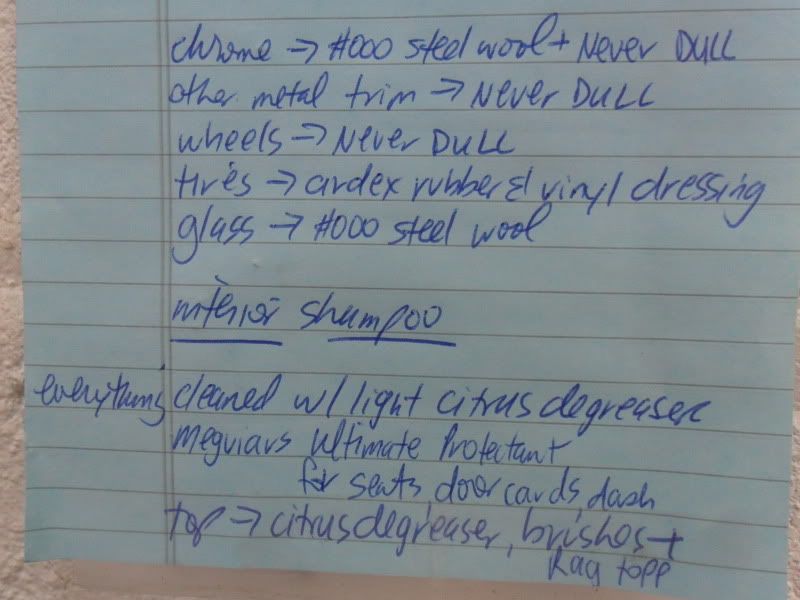 chrome → #000 steel wool + Never DULL
other metal trim → Never DULL
wheels → Never DULL
tires → ardex rubber & vinyl dressing
glass → #000 steel wool
interior shampoo
everything cleaned w/ light citrus degreaser
meguiars ultimate Protectant
for seats, door cards, dash
top → citrus degreaser, brushes +
Rag topp